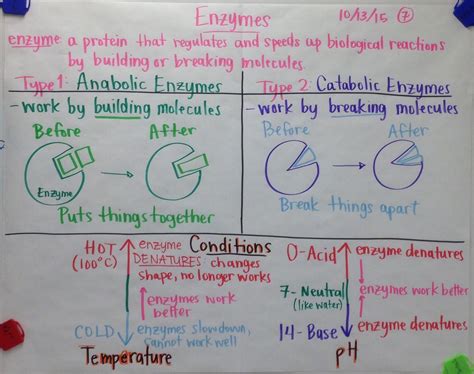 Enzymes
10/13/15 7
enzyme: a protein that regulates and speeds up biological reactions
by building or breaking molecules.
Type 1: Anabolic Enzymes
- work by building molecules
Before After
Enzyme
Puts things together
Type 2: Catabolic Enzymes
- work by breaking molecules
Before After
Break things apart
Conditions
HOT
(100°C)
enzyme
DENATURES changes
shape, no longer works
enzymes work
better
COLD
enzymes slow down,
cannot work well
Temperature
0-Acid
enzyme denatures
enzymes work better
7-Neutral
(like water)
14-Base
enzyme denatures
pH